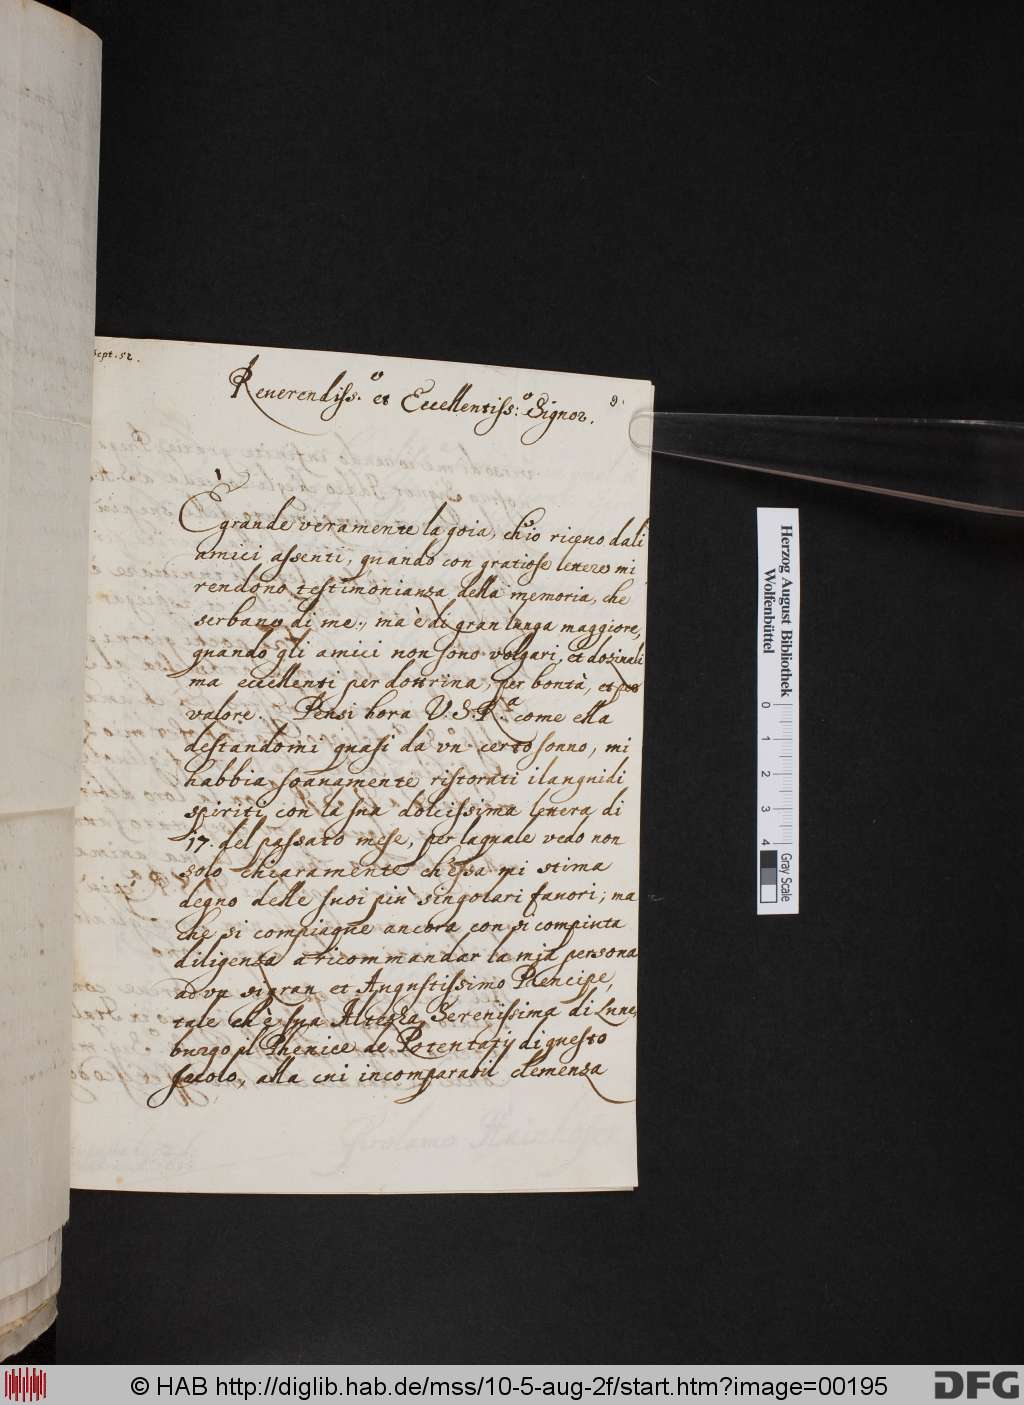 Sept. 52.
9.
Reuerendiss.º et Eccellentiss.º Signor.
È grande veramente la goia, ch'io riceuo dali
amici assenti, quando con gratiose lettere mi
rendono testimonianza della memoria, che
serbano di me, mà è di gran lunga maggiore,
quando gli amici non sono volgari, et dozinali
ma eccellenti per dottrina, per bontà, et per
valore. Pensi hora V. S. R.ª come ella
destandomi quasi da vn certo sonno, mi
habbia soauamente ristorati i languidi
spiriti con la sua dolcissima lettera di
17. del passato mese, per laquale vedo non
solo chiaramente ch'essa mi stima
degno delle suoi più singolari fauori; ma
che si compiaque ancora con si compiuta
diligenza a ricommandar la mia persona
ad vn si gran et Augustissimo Prencipe,
tale ch'è sua Altezza Serenissima di Lune
burgo il Phenice de Potentatij di questo
secolo, alla cui incomparabil clemenza
Herzog August Bibliothek
Wolfenbüttel
0 1 2 3 4
Gray Scale
© HAB http://diglib.hab.de/mss/10-5-aug-2f/start.htm?image=00195
DFG